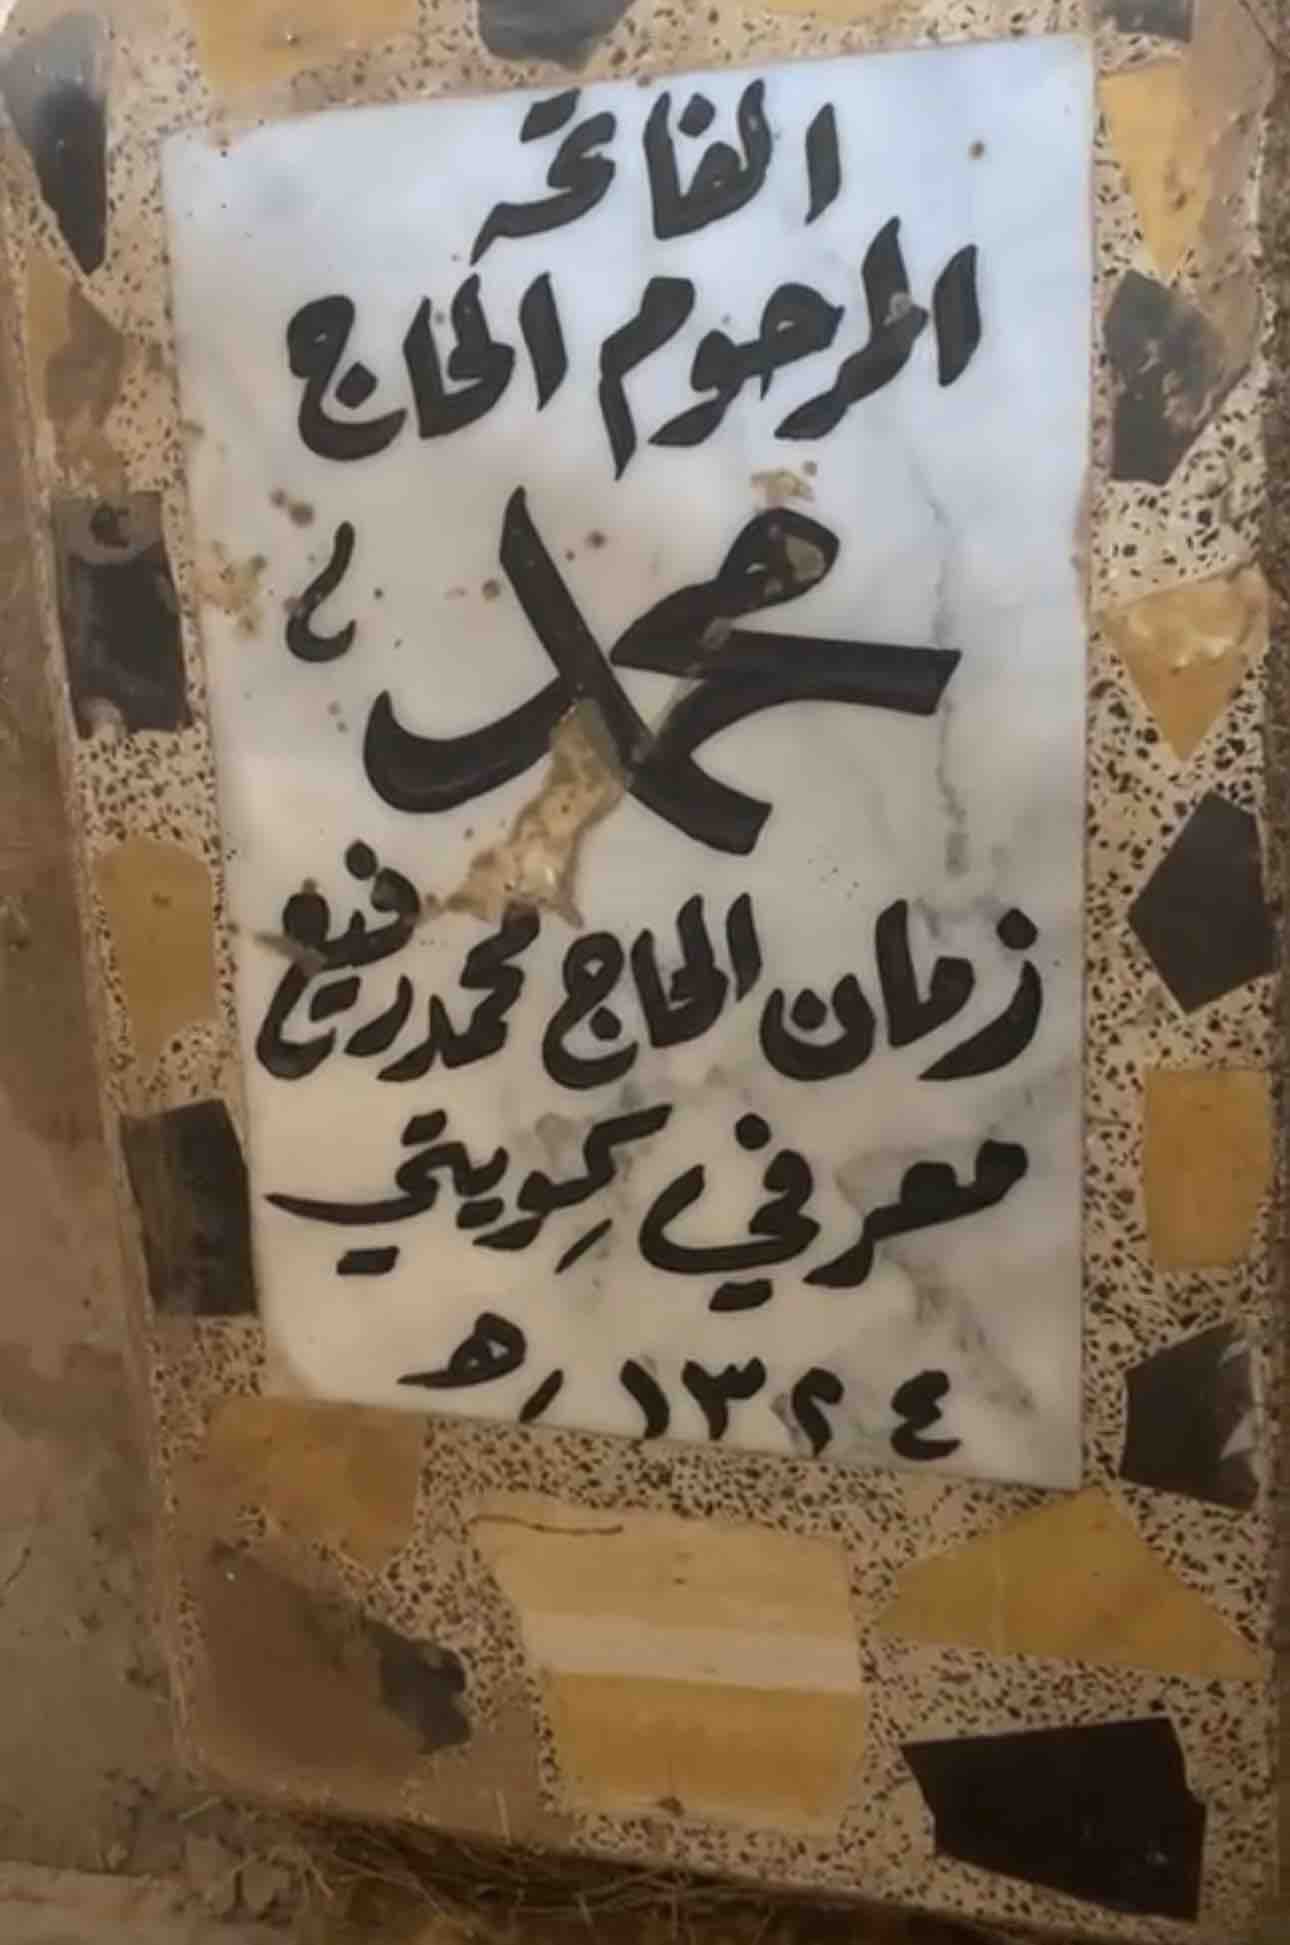 الفاتحة
المرحوم الحاج
محمد
زمان الحاج محمد رفيع
معرفي كويتي
١٣٢٤ هـ